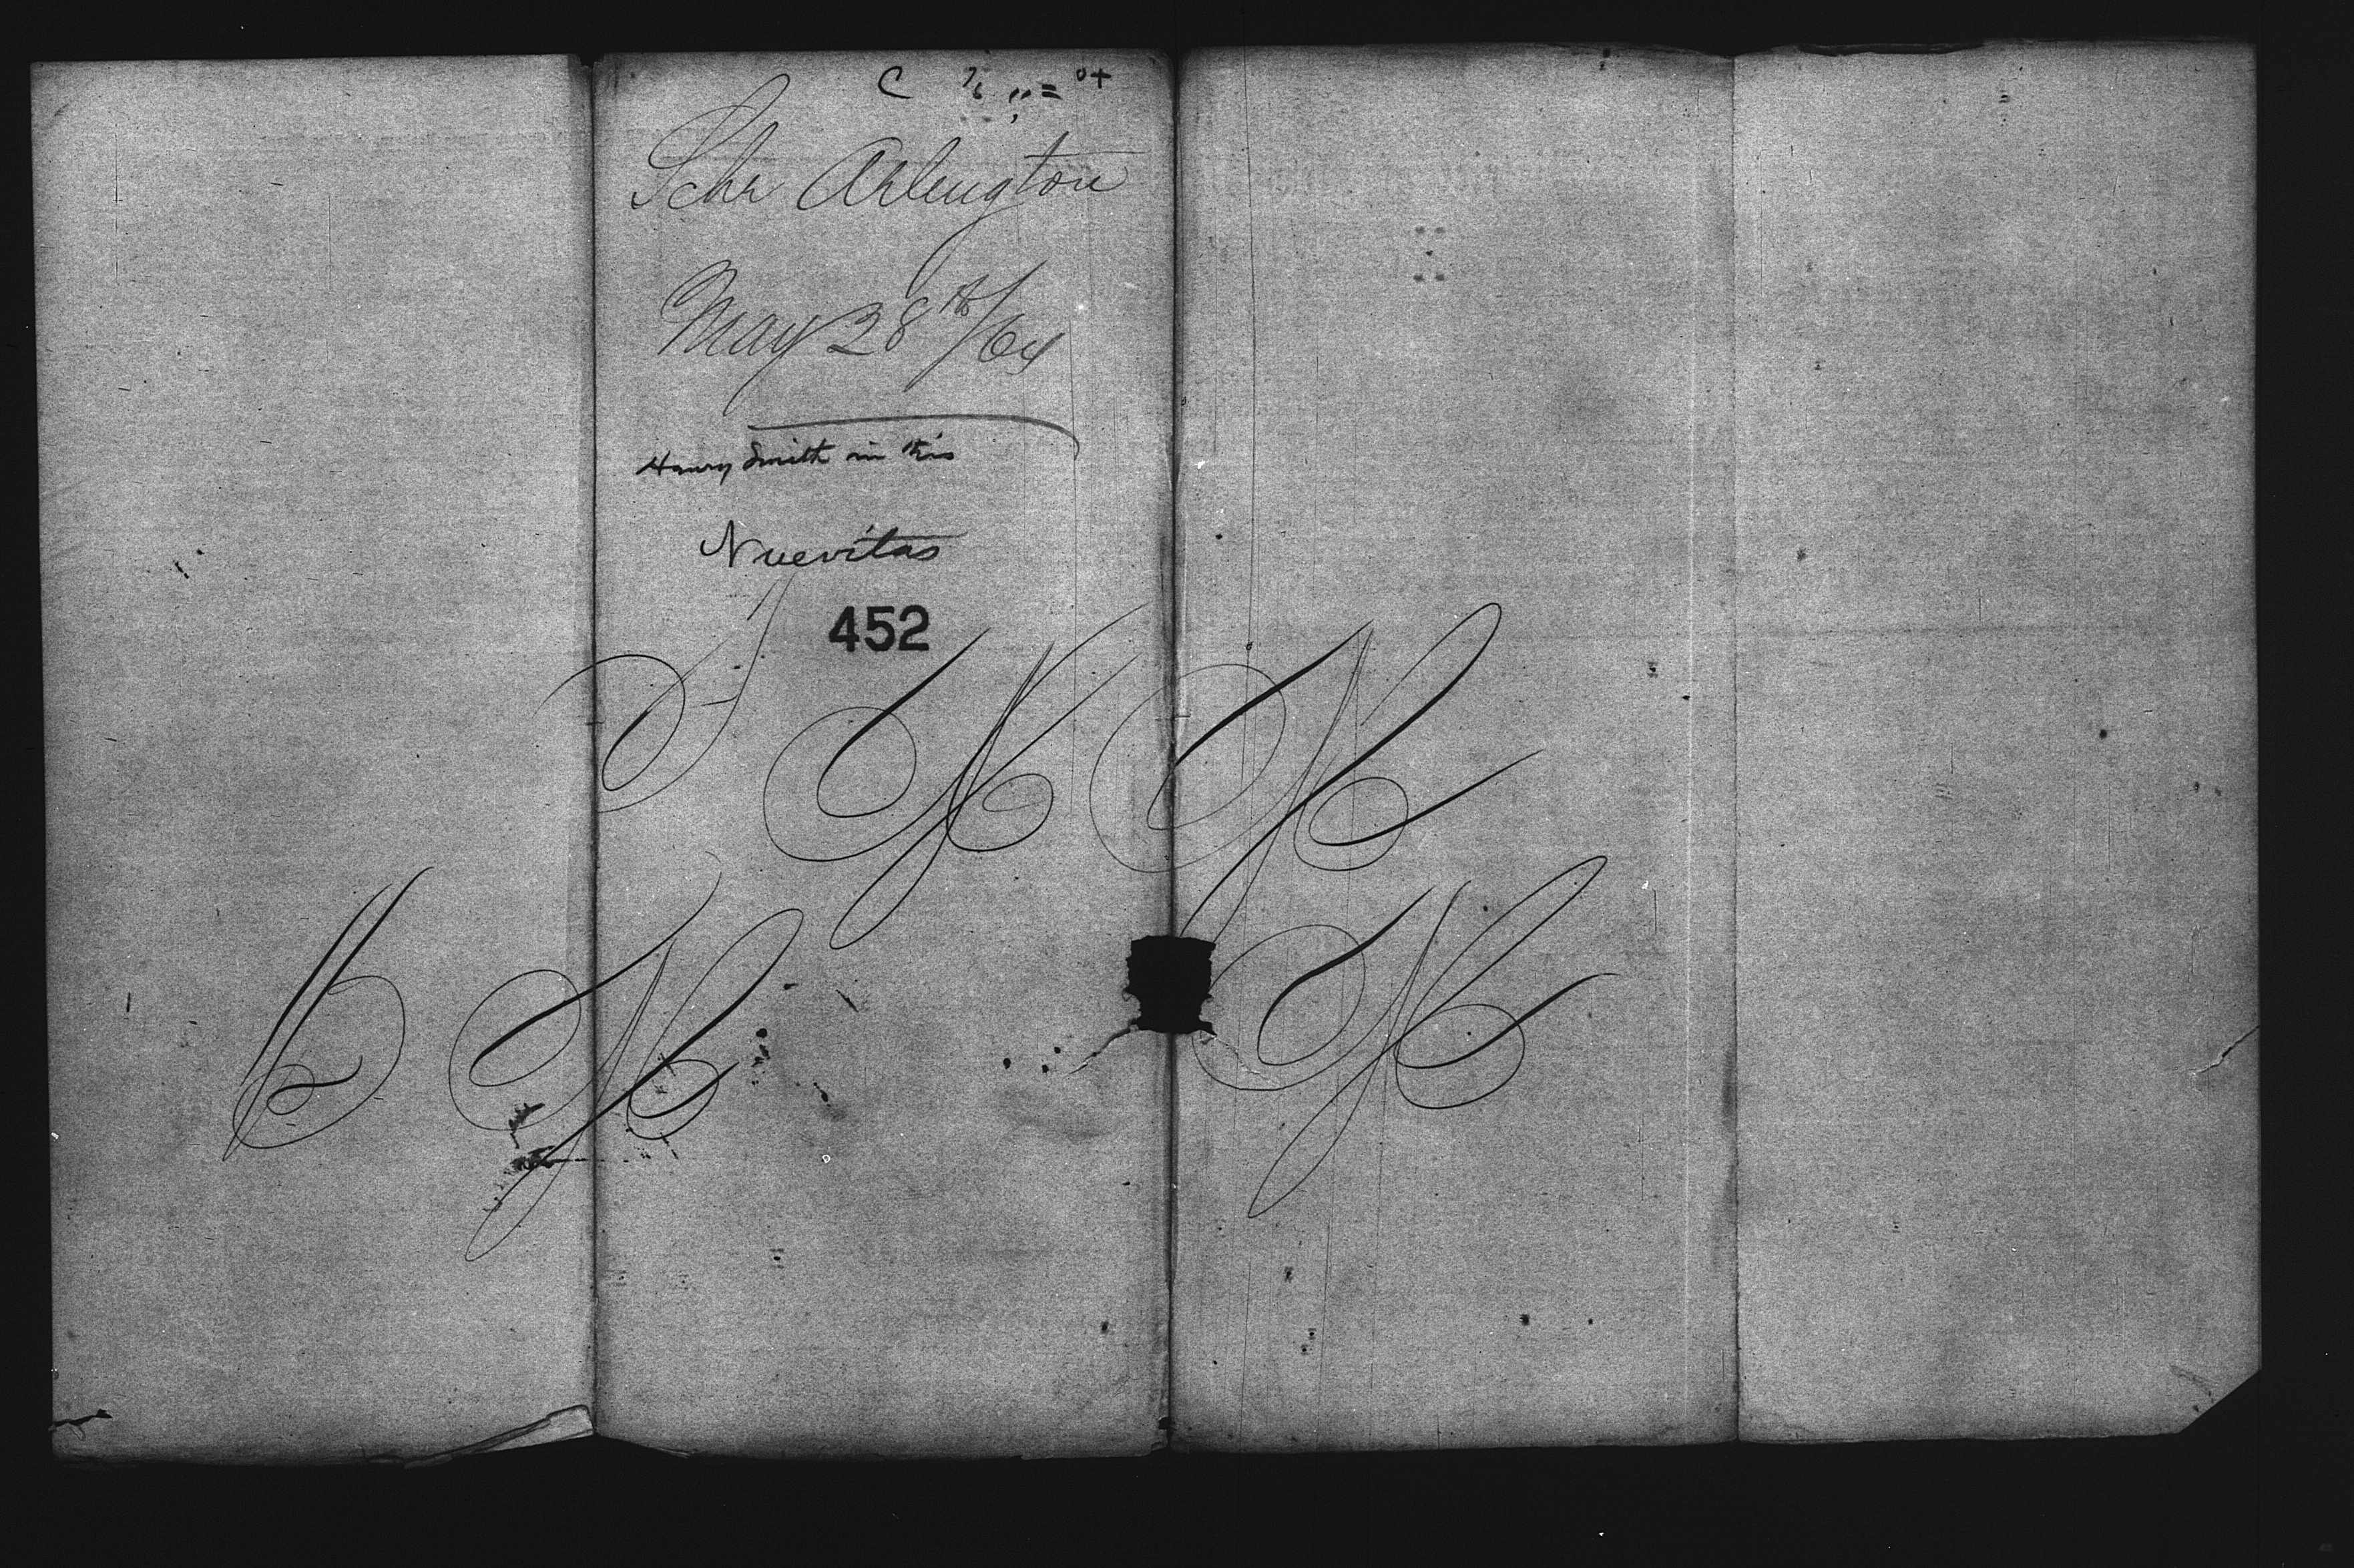 Schr Arlington
May 28th/64
Henry Smith in this
Nuevitas
452